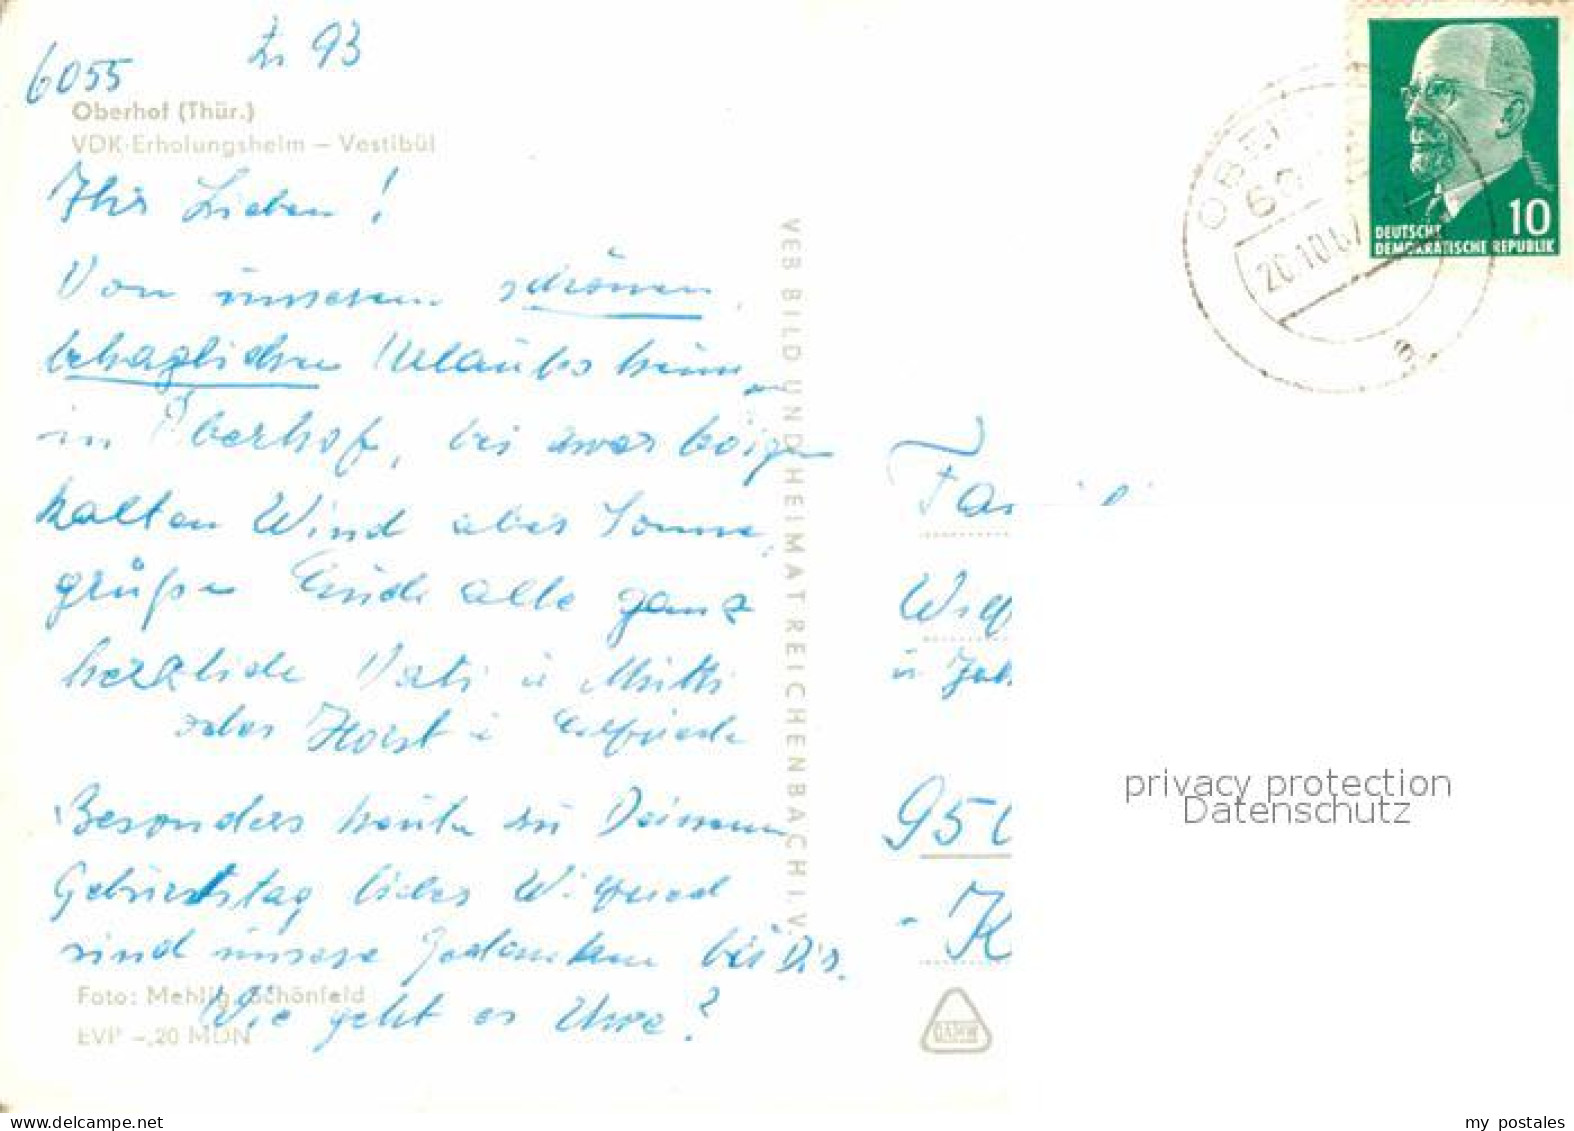 6055 Zi 93
Oberhof (Thür.)
VDK-Erholungsheim – Vestibül
Ihr Lieben!
Von unserem schönen,
behaglichen Urlaubsheim
in Oberhof, bei zwar böigen
kalten Wind aber Sonne,
grüßen Euch alle ganz
herzlich Vati u Mutti
oder Horst u Elfriede
Besonders heute zu Deinem
Geburtstag lieber Wilfried
sind unsere Gedanken bei Dir.
Wie geht es Uwe?
Foto: Mehlig, Schönfeld
EVP –,20 MDN
VEB BILD UND HEIMAT REICHENBACH I. V.
DEUTSCHE
DEMOKRATISCHE REPUBLIK
10
20.10.67
a
Fa
u.
95
K
DAMW
privacy protection
Datenschutz
www.delcampe.net
my_postales